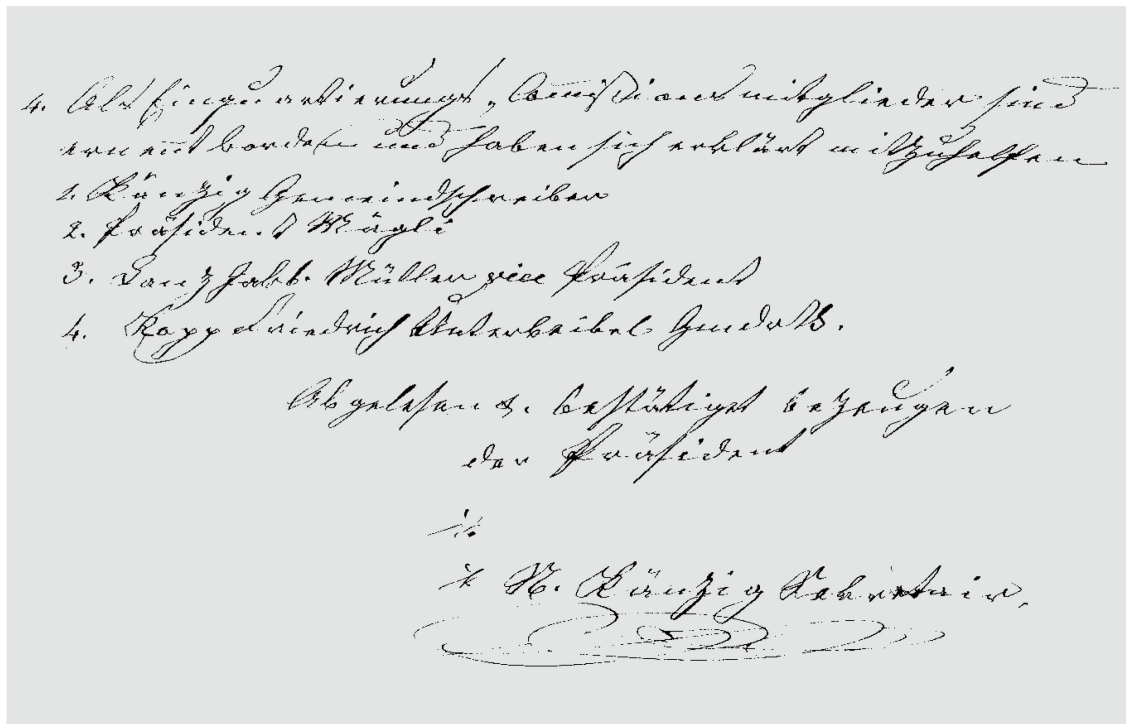 4. Als Einquartierungs, Commissionsmitglieder sind
ernennt worden und haben sich erklärt mitzuhelfen
1. Känzig Gemeindschreiber
2. Präsident Mägli
3. Tanz Jakb. Müller vice Präsident
4. Kopp Friedrich Unterweibel Gemdrth.
Abgelesen & bestätiget bezeugen
der Präsident
N. Känzig Sekretair.